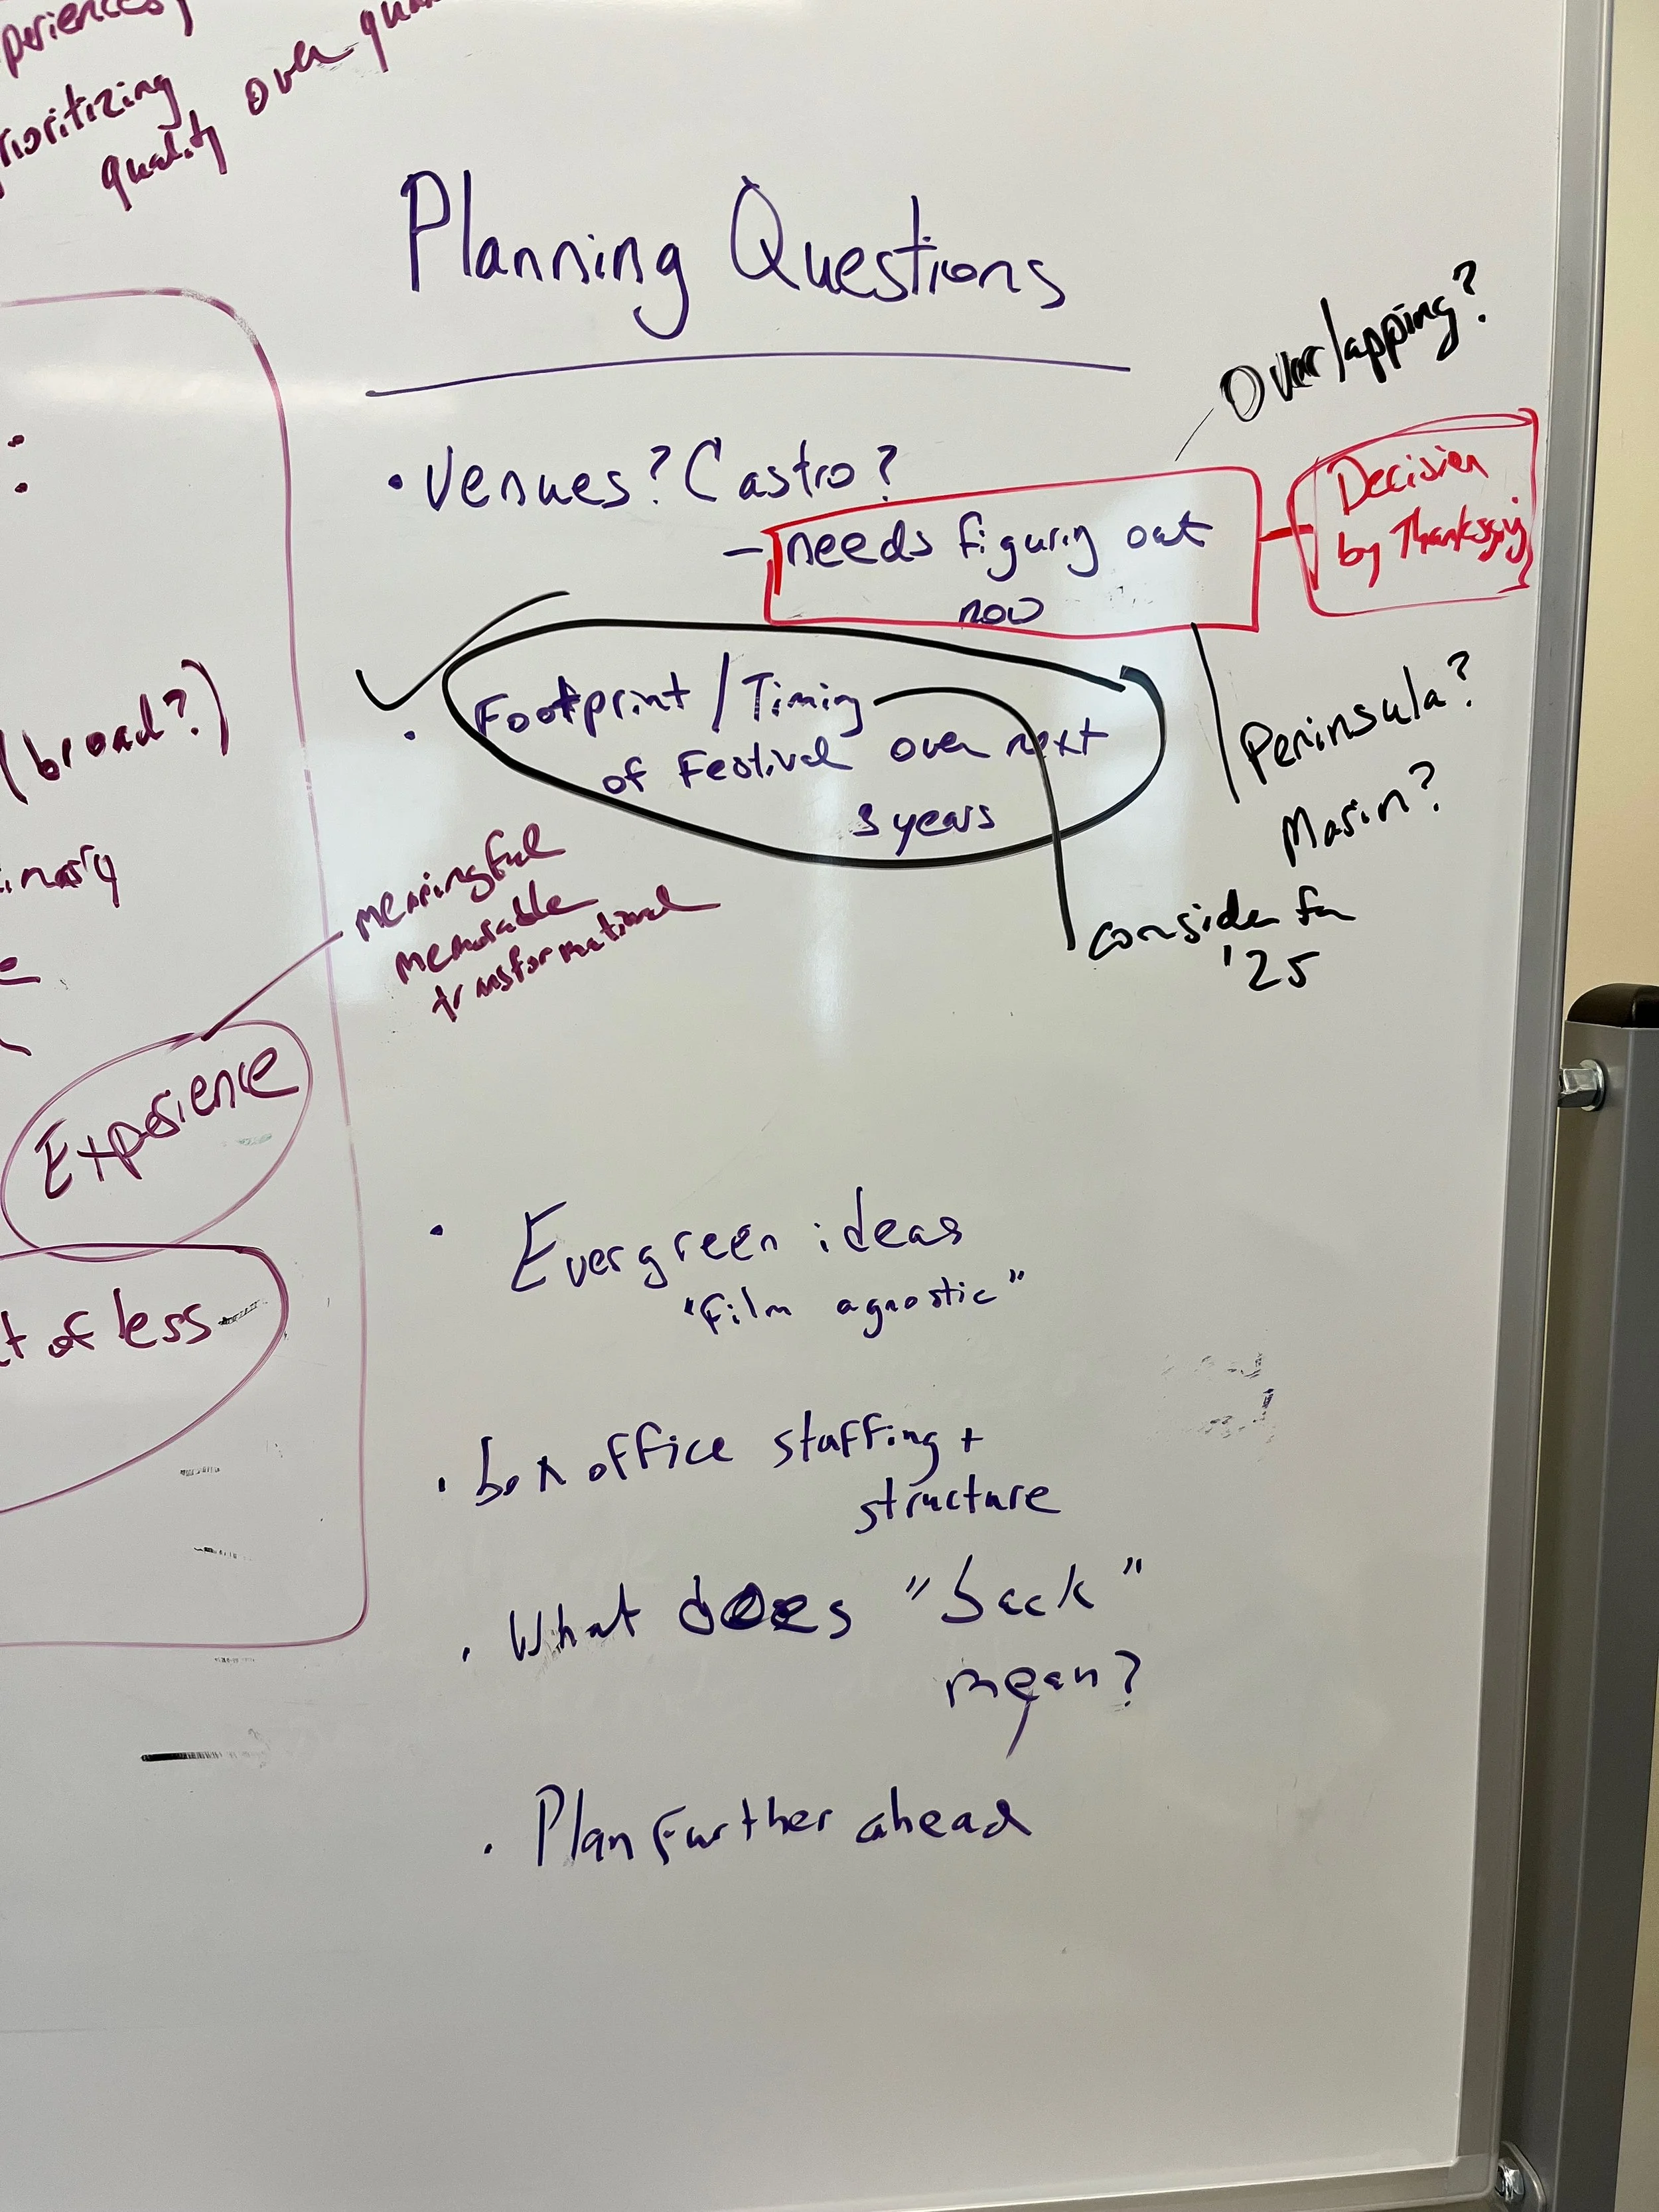 periences
prioritizing
quality over
Planning Questions
Overlapping?
• Venues? Castro?
– needs figuring out
now
Decision
by Thanksgiving
• Footprint / Timing
of Festival over next
3 years
Peninsula?
Marin?
consider for
'25
(broad?)
meaningful
memorable
transformational
Experience
of less
• Evergreen ideas
"film agnostic"
• box office staffing +
structure
• What does "back"
mean?
• Plan further ahead